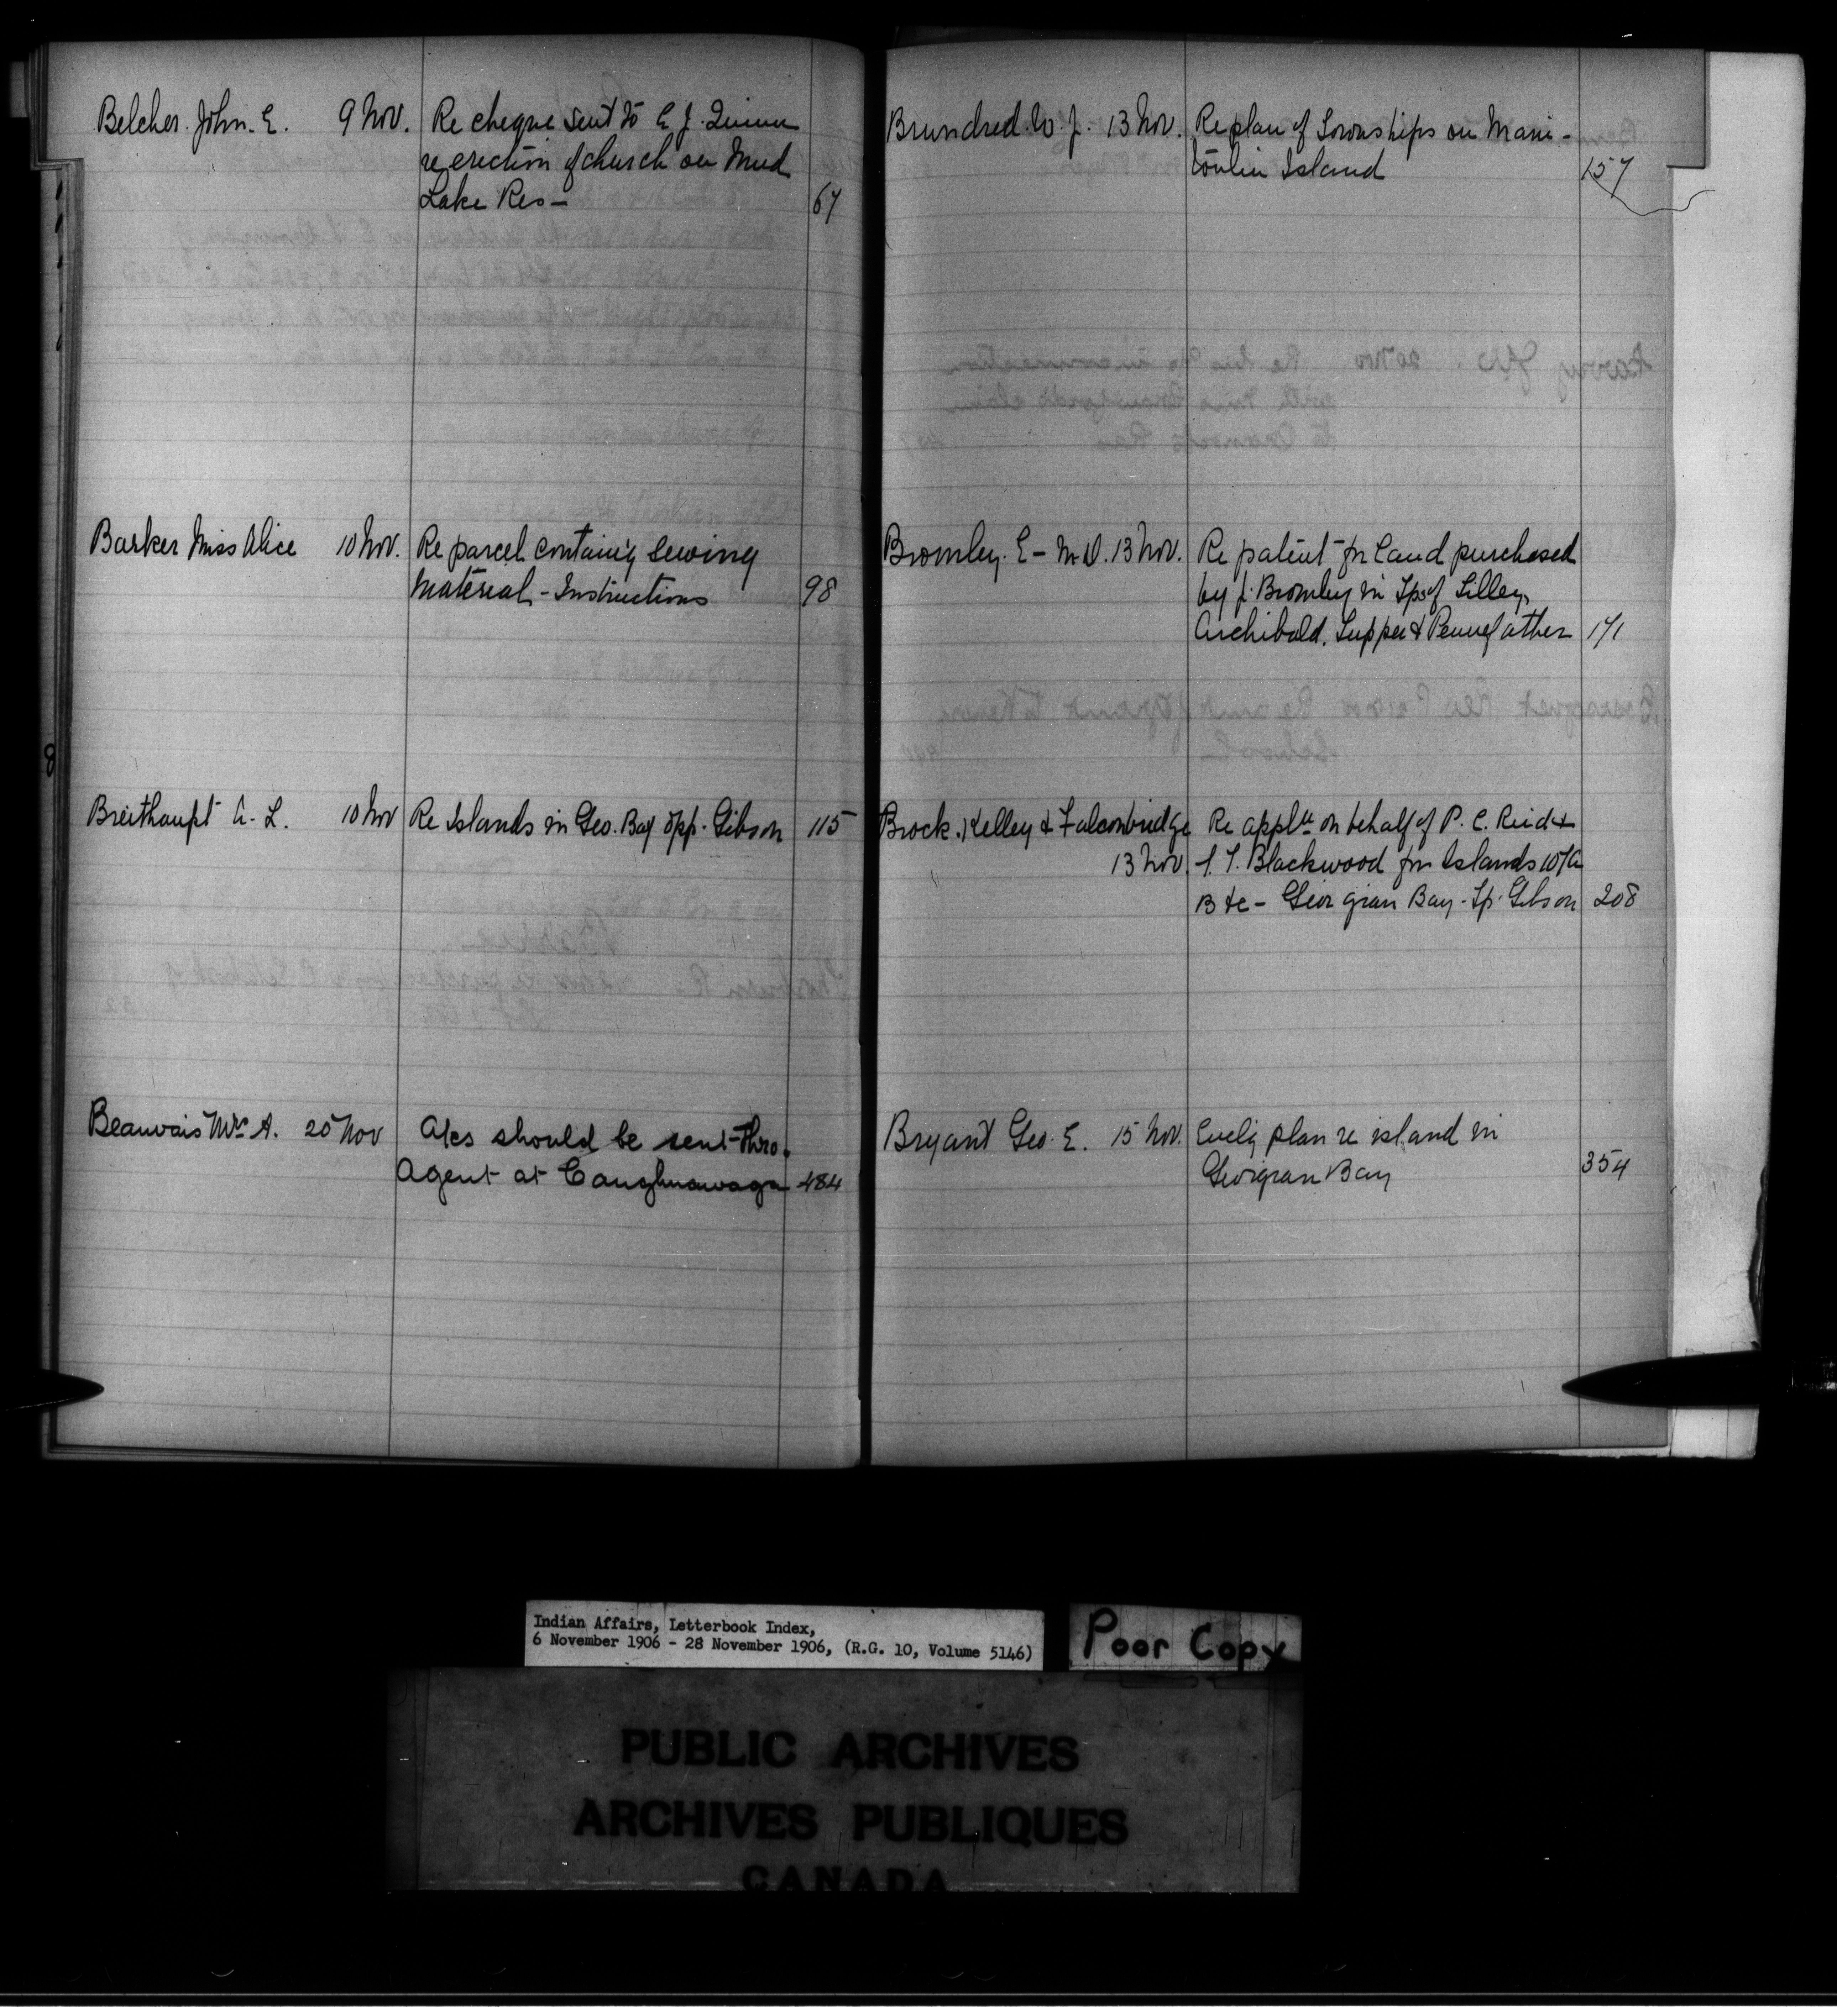 Belcher. John. E. 9 Nov. Re cheque sent to E. J.
re erection of church on Mud
Lake Res - 67
Barker Miss Alice 10 Nov. Re parcel containg sewing
material - Instructions 98
Breithaupt A. L. 10 Nov Re Islands in Geo. Bay opp. Gibson 115
Beauvais Mrs A. 20 Nov A/cs should be sent thro.
Agent at Caughnawaga 484
Brundred. W. J. 13 Nov. Re plan of Townships on Mani-
toulin Island 157
Bromley. E - M.D. 13 Nov. Re patent for land purchased
by J. Bromley in Tps of Tilley,
Archibald, Tupper & Pennefather 171
Brock, Kelley & Falconbridge Re applt on behalf of P. C. Reid &
13 Nov. Blackwood for Islands 107A
B &c - Georgian Bay - Tp. Gibson 208
Bryant Geo. E. 15 Nov. Enclg plan re island in
Georgian Bay 354
8
Indian Affairs, Letterbook Index,
6 November 1906 - 28 November 1906, (R.G. 10, Volume 5146)
Poor Copy
PUBLIC ARCHIVES
ARCHIVES PUBLIQUES
CANADA